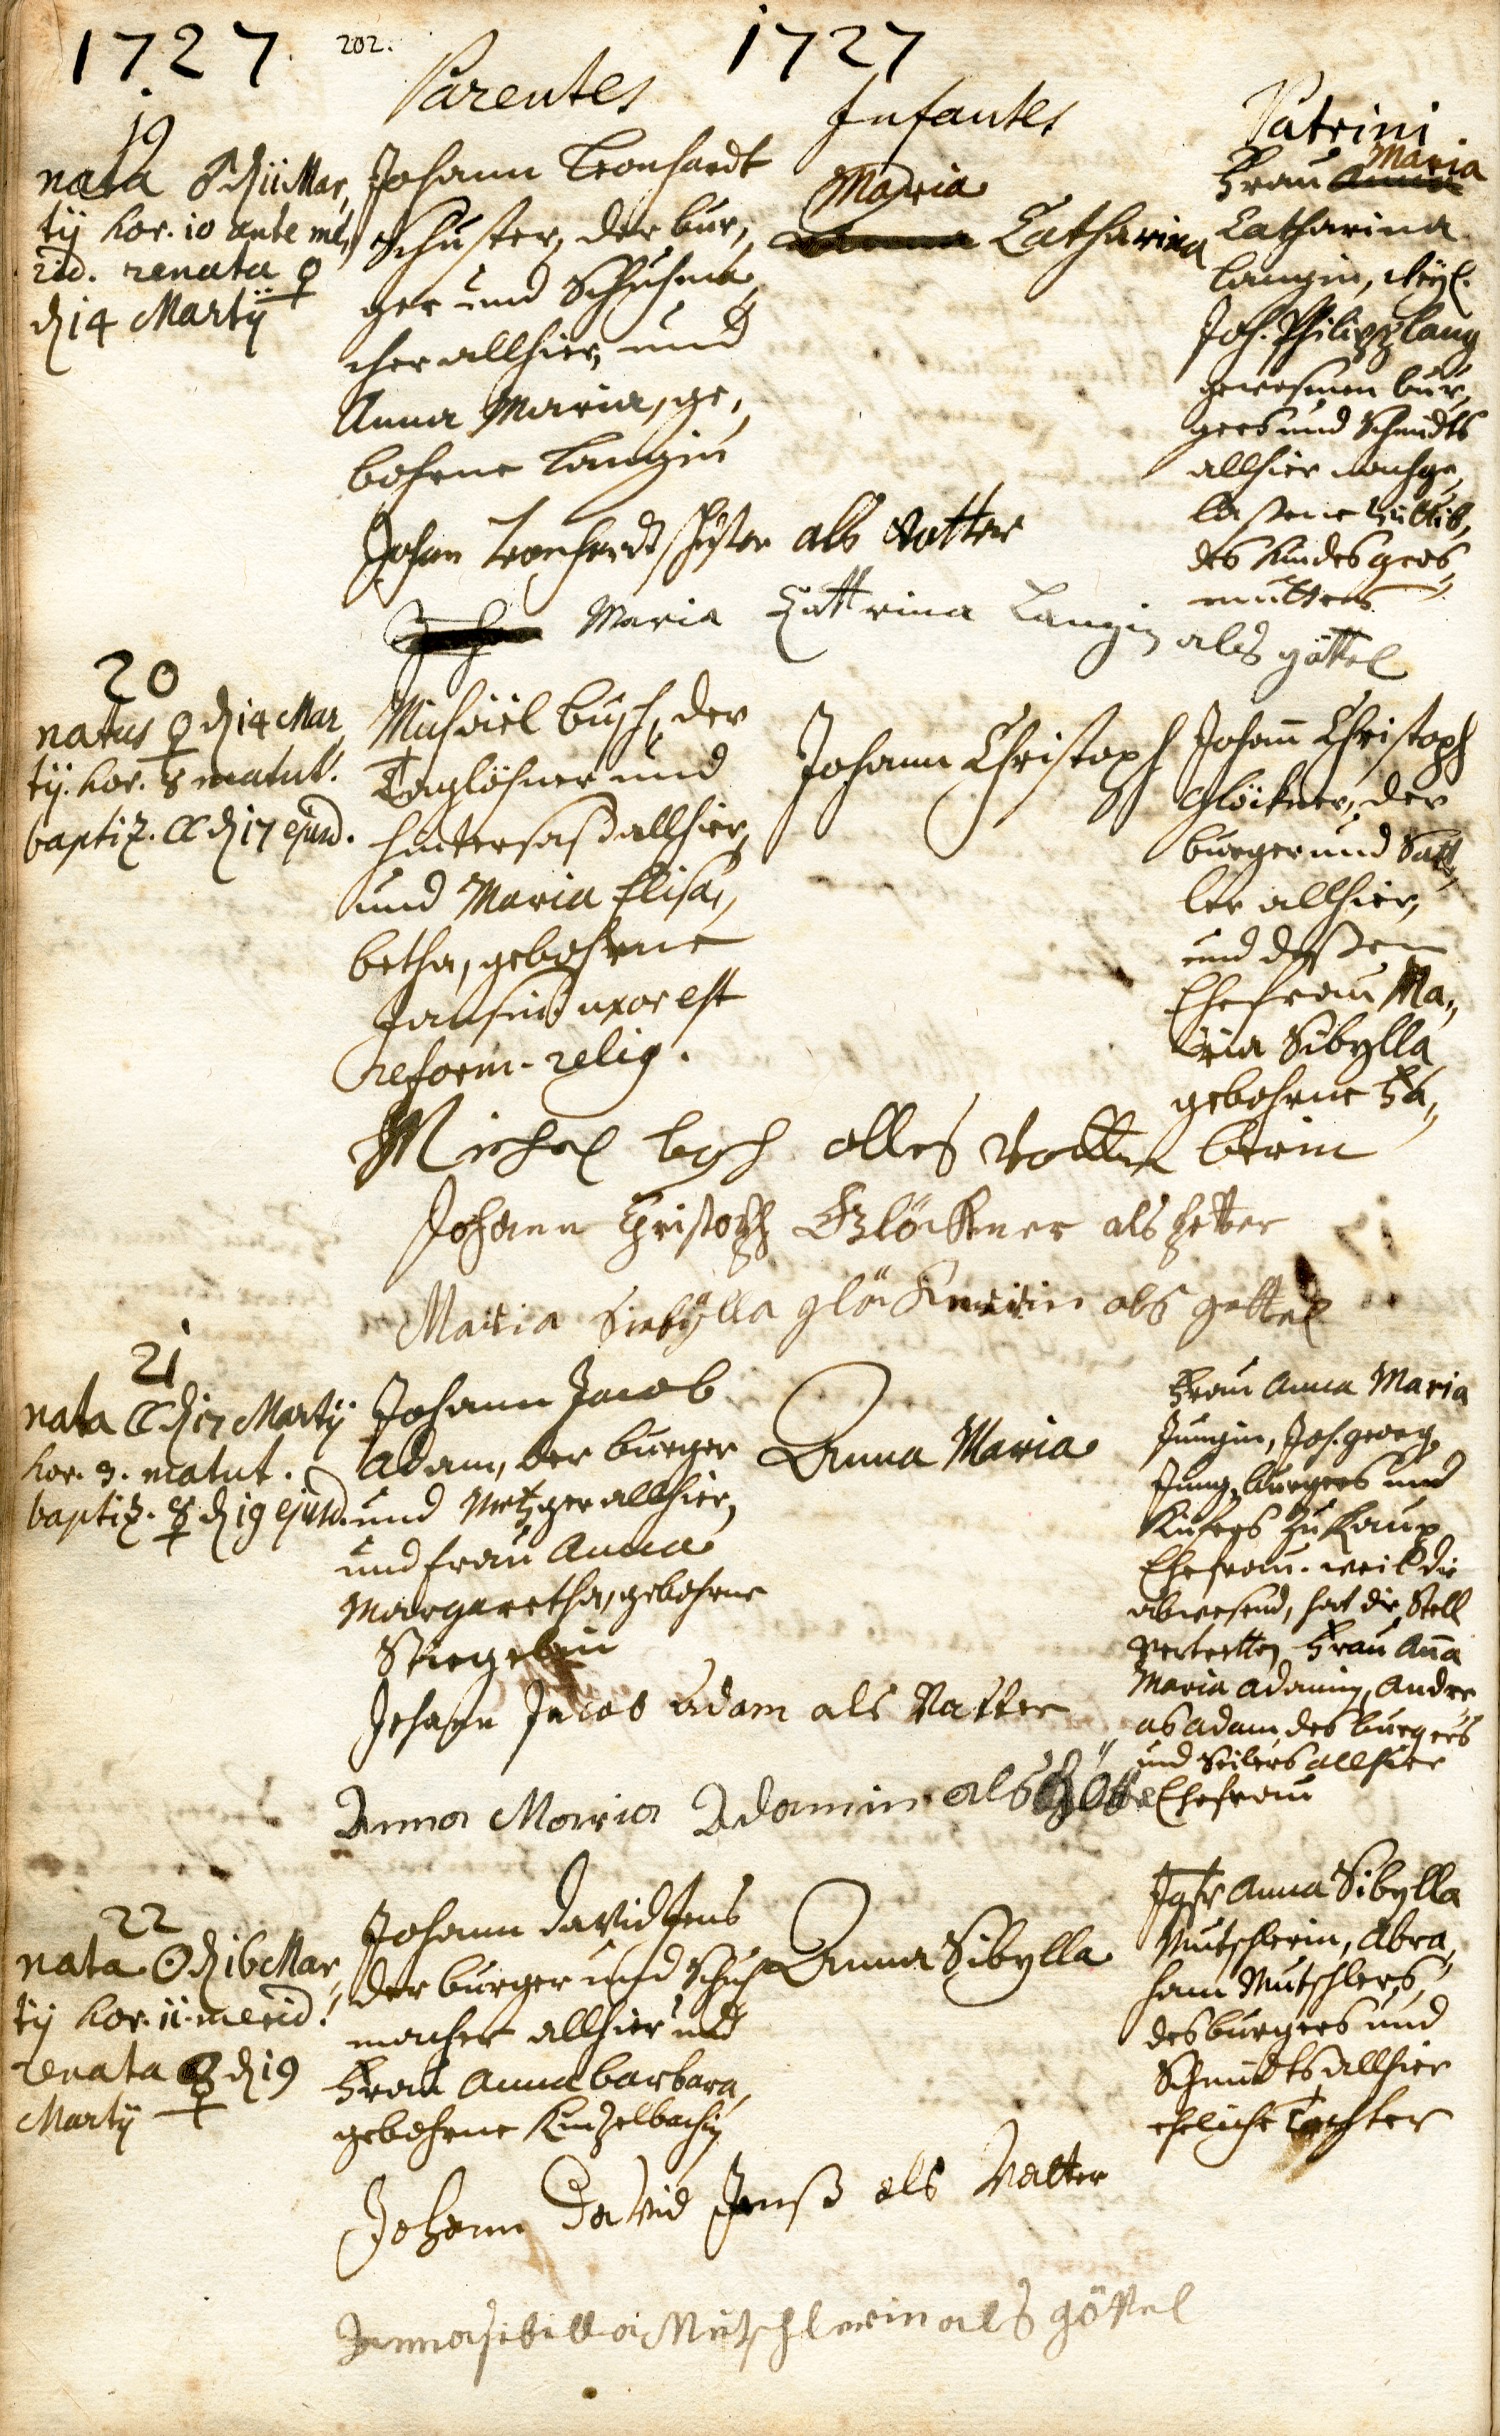 1727. 202. 1727
Parentes
Infantes
Patrini
19
nata ♂ d 11 Mar,
tij hor. 10 ante me,
rid. renata ♀
d 14 Martij
Johann Leonhardt
Schuster, der bur,
ger und Schuhma,
cher allhier, und
Anna Maria, ge,
bohrne Langin
Maria
Catharina
Frau Maria
Catharina
Langin, weyl.
Joh. Philipp Lang
gewesenen bur,
gers und Schmidts
allhier nachge,
laßene Wittib,
des Kindes gros,,
mutter
Johan Leonhardt Schuster als Vatter
Maria Cattrina Langin als göttel
20
natus ♀ d 14 Mar
tij. hor. 8 matut.
baptiz. ☾ d 17 ejusd.
Michäel Busch, der
Taglöhner und
hintersaß allhier,
und Maria Elisa,
betha, gebohrne
uxor est
reform. relig.
Johann Christoph
Johann Christoph
Glöckner, der
burger und Satt,,
ler allhier,
und deßen
Ehefrau Ma,,
ria Sibylla
gebohrne Fa,,
berin
Michel als Vatter
Johann Christoph Glöckner als
Maria Siebÿlla glöcknerin als gettel
21
nata ☾ d 17 Martij
hor. 3. matut.
baptiz. ☿ d 19 ejusd.
Johann Jacob
Adam, der burger
und Metzger allhier,
und frau Anna
Margaretha, gebohrne
Anna Maria
Frau Anna Maria
Jungin, Joh. georg
Jung, burgers und
Küfers zu
Ehefrau. weil die
abwesend, hat die Stell
vertretten Frau Anna
Maria Adamin, Andre,
as Adam, des burgers
und Seilers allhier
Ehefrau
Johann Jacob Adam als Vatter
Anna Maria Adamin als
22
nata ☉ d 16 Mar,
tij hor. 11. merid.
renata ☿ d 19
Martij
Johann David Jens
der burger und Schuh
macher allhier und
Frau Anna Barbara,
gebohrne Kinzelbachin
Anna Sibylla
Jgfr Anna Sibylla
Mutschlerin, Abra,
ham Mutschlers,
des burgers und
Schmidts allhier
eheliche Tochter
Johann David Jenß als Vatter
Anna sibilla Mutschlerin als göttel